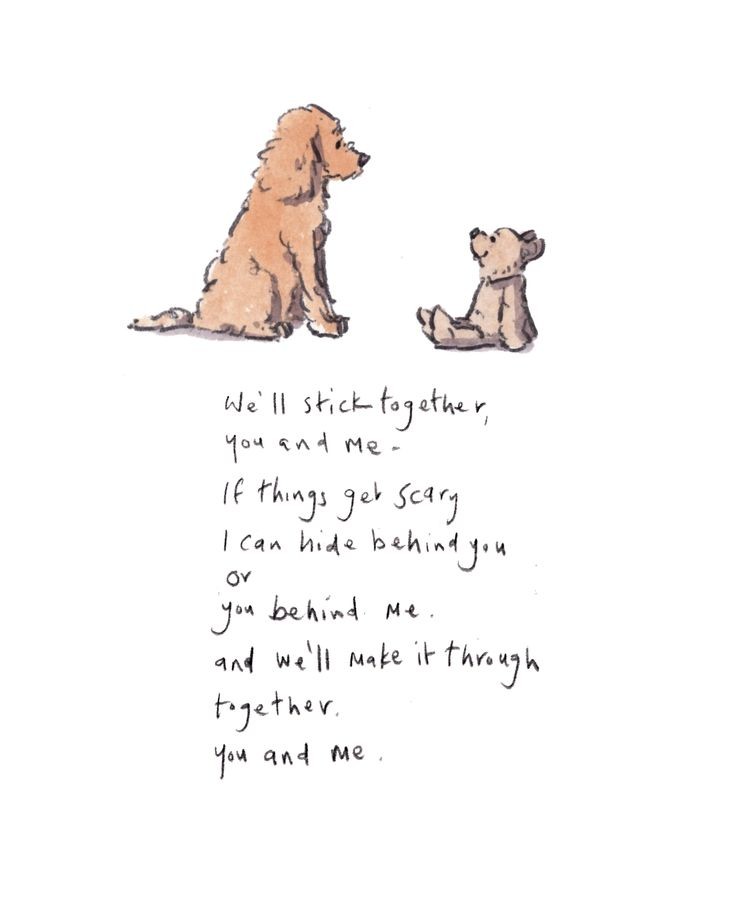 We'll stick together,
you and me -
If things get scary
I can hide behind you
or
you behind me.
and we'll make it through
together.
you and me.